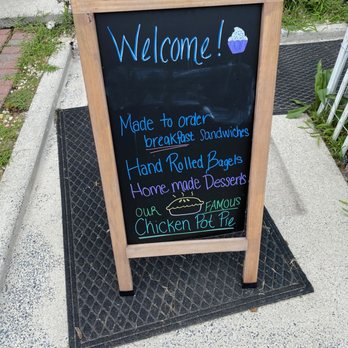 Welcome!
Made to order
breakfast Sandwiches
Hand Rolled Bagels
Home made Desserts
OUR FAMOUS
Chicken Pot Pie